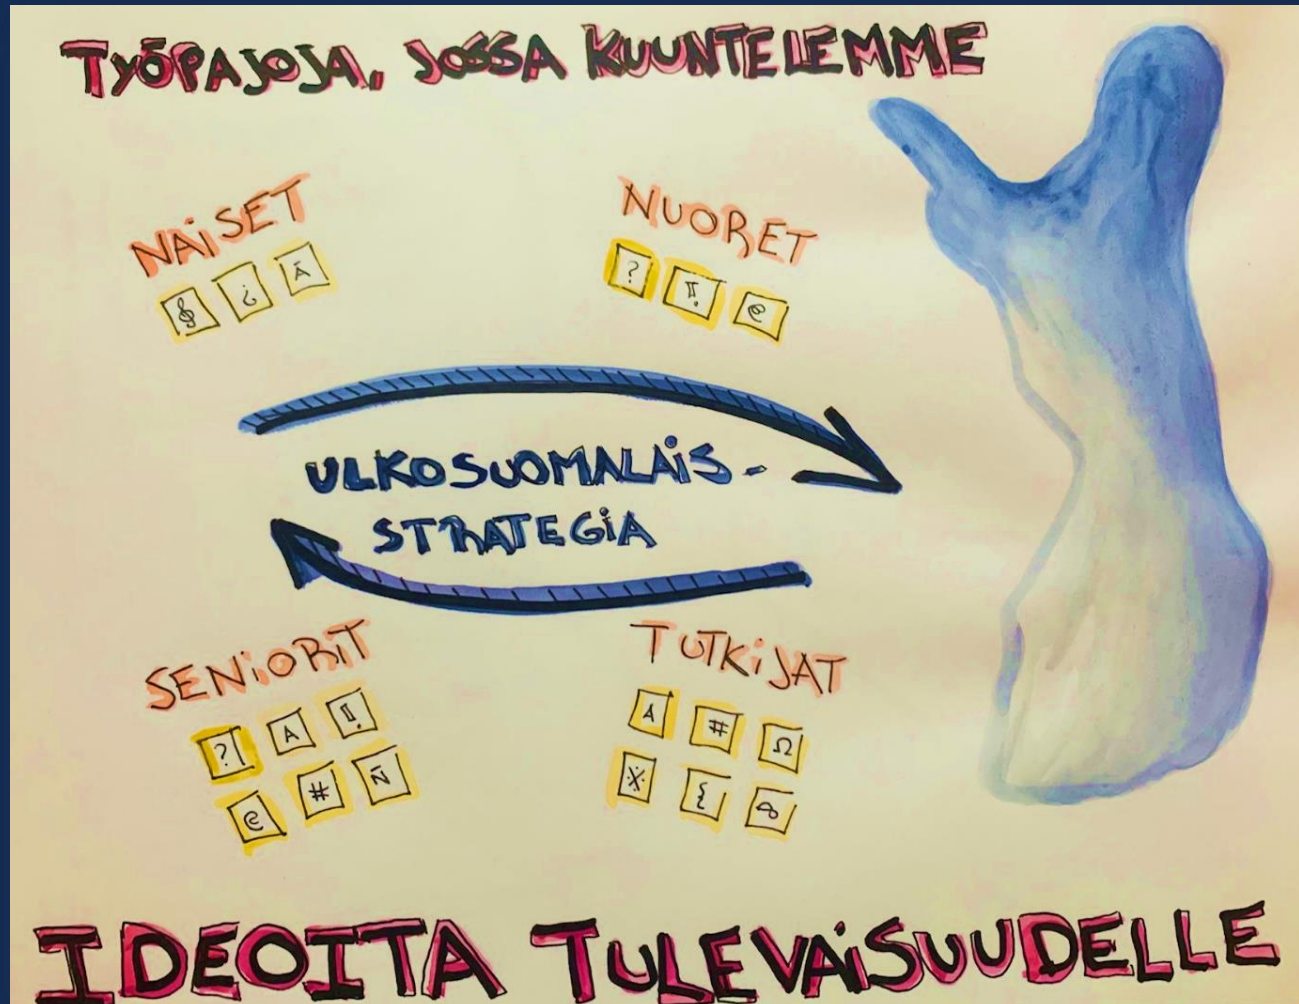 TYÖPAJOJA, JOSSA KUUNTELEMME
NAISET
NUORET
? @
ULKOSUOMALAIS-
STRATEGIA
SENIORIT
TUTKIJAT
? A
A # Ω
@ # Ñ
{
IDEOITA TULEVAISUUDELLE